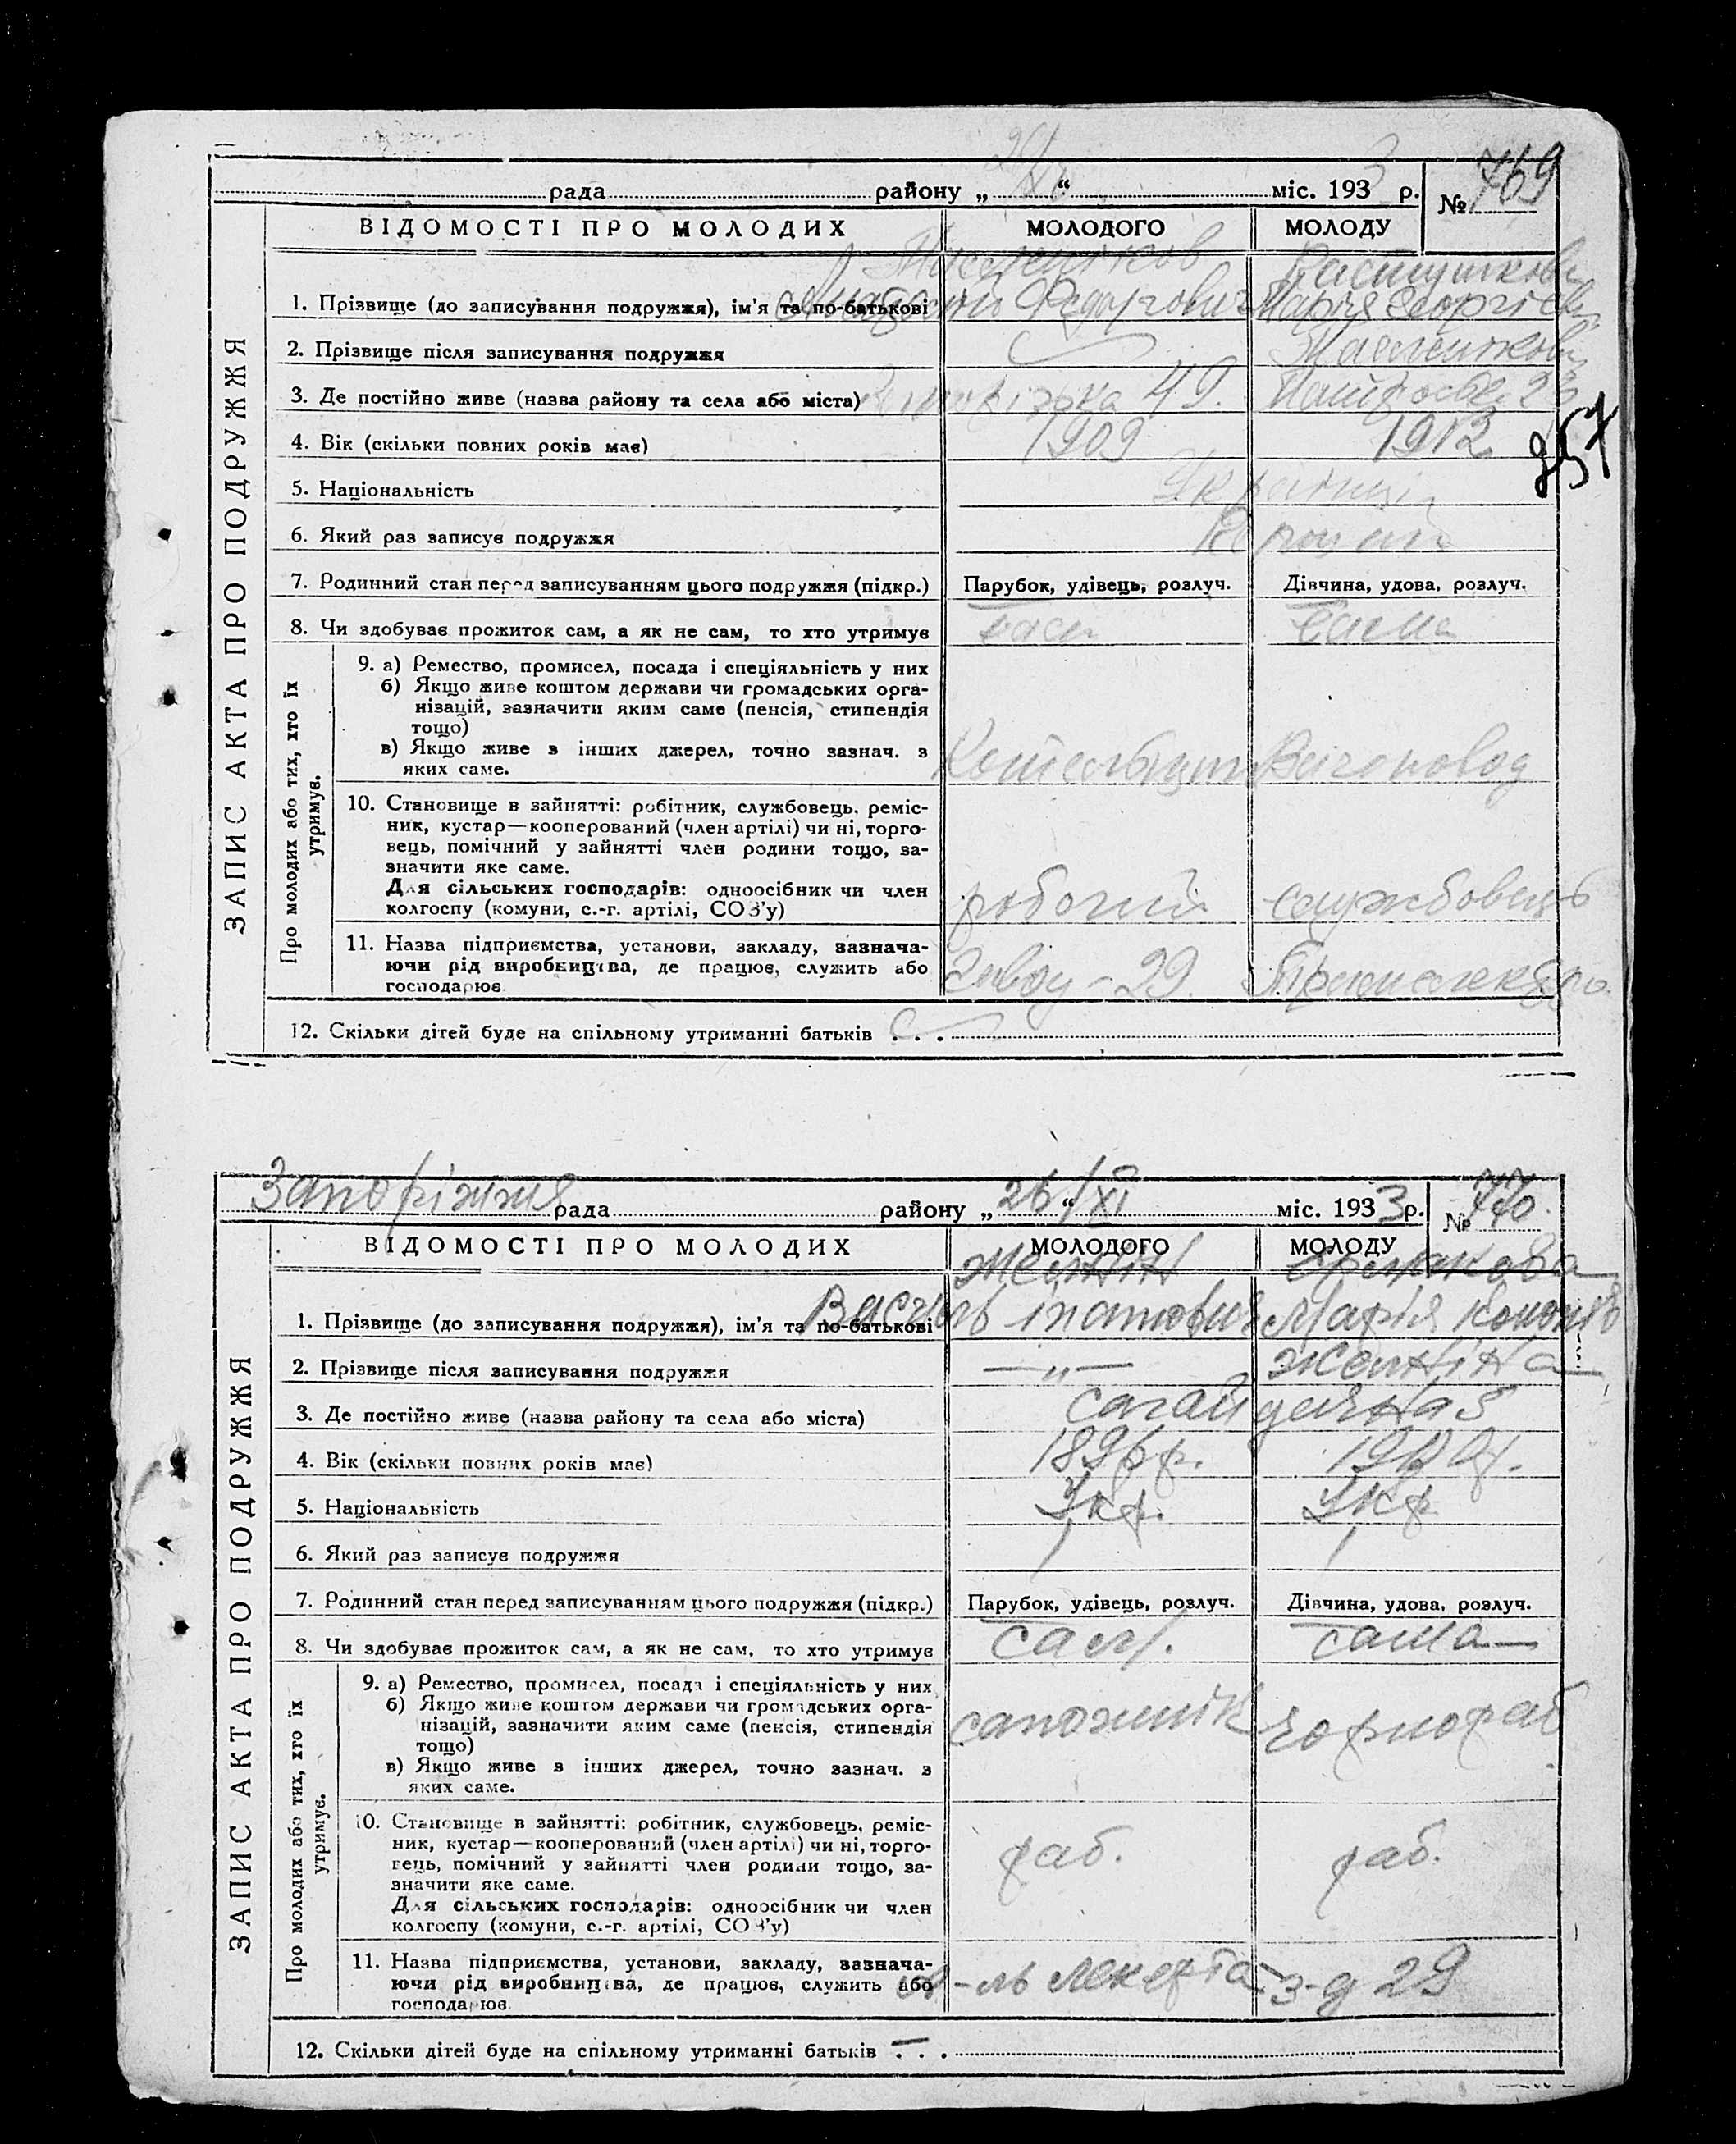 рада району „26/XI“ міс. 1933 р. № 769
ВІДОМОСТІ ПРО МОЛОДИХ МОЛОДОГО МОЛОДУ
857
ЗАПИС АКТА ПРО ПОДРУЖЖЯ
1. Прізвище (до записування подружжя), ім'я та по-батькові Федорович Марія Георгіев
2. Прізвище після записування подружжя
3. Де постійно живе (назва району та села або міста) 49. 23
4. Вік (скільки повних років має) 1909 1912
5. Національність
6. Який раз записує подружжя
7. Родинний стан перед записуванням цього подружжя (підкр.) Парубок, удівець, розлуч. Дівчина, удова, розлуч.
8. Чи здобуває прожиток сам, а як не сам, то хто утримує сам сама
Про молодих або тих, хто їх
утримує.
9. а) Ремество, промисел, посада і спеціяльність у них
б) Якщо живе коштом держави чи громадських орга-
нізацій, зазначити яким саме (пенсія, стипендія
тощо)
в) Якщо живе з інших джерел, точно зазнач. з
яких саме.
Котельщик Вагоновод
10. Становище в зайнятті: робітник, службовець, реміс-
ник, кустар—кооперований (член артілі) чи ні, торго-
вець, помічний у зайнятті член родини тощо, за-
значити яке саме.
Для сільських господарів: одноосібник чи член
колгоспу (комуни, с.-г. артілі, СОЗ'у)
робочий службовець
11. Назва підприємства, установи, закладу, зазнача-
ючи рід виробництва, де працює, служить або
господарює
Завод - 29.
12. Скільки дітей буде на спільному утриманні батьків . . .
Запоріжжя рада району „26/XI“ міс. 1933 р. № 770.
ВІДОМОСТІ ПРО МОЛОДИХ МОЛОДОГО МОЛОДУ
ЗАПИС АКТА ПРО ПОДРУЖЖЯ
Желнін
1. Прізвище (до записування подружжя), ім'я та по-батькові Василь Іпатович Марія
2. Прізвище після записування подружжя —„— Желніна
3. Де постійно живе (назва району та села або міста) Сагайдачна 5
4. Вік (скільки повних років має) 1896 р.
5. Національність Укр. Укр.
6. Який раз записує подружжя 1 1
7. Родинний стан перед записуванням цього подружжя (підкр.) Парубок, удівець, розлуч. Дівчина, удова, розлуч.
8. Чи здобуває прожиток сам, а як не сам, то хто утримує сам. сама
Про молодих або тих, хто їх
утримує.
9. а) Ремество, промисел, посада і спеціяльність у них
б) Якщо живе коштом держави чи громадських орга-
нізацій, зазначити яким саме (пенсія, стипендія
тощо)
в) Якщо живе з інших джерел, точно зазнач. з
яких саме.
сапожнік чорнораб
10. Становище в зайнятті: робітник, службовець, реміс-
ник, кустар—кооперований (член артілі) чи ні, торго-
вець, помічний у зайнятті член родини тощо, за-
значити яке саме.
Для сільських господарів: одноосібник чи член
колгоспу (комуни, с.-г. артілі, СОЗ'у)
раб. раб.
11. Назва підприємства, установи, закладу, зазнача-
ючи рід виробництва, де працює, служить або
господарює
Лекерта з-д 29
12. Скільки дітей буде на спільному утриманні батьків — . . .